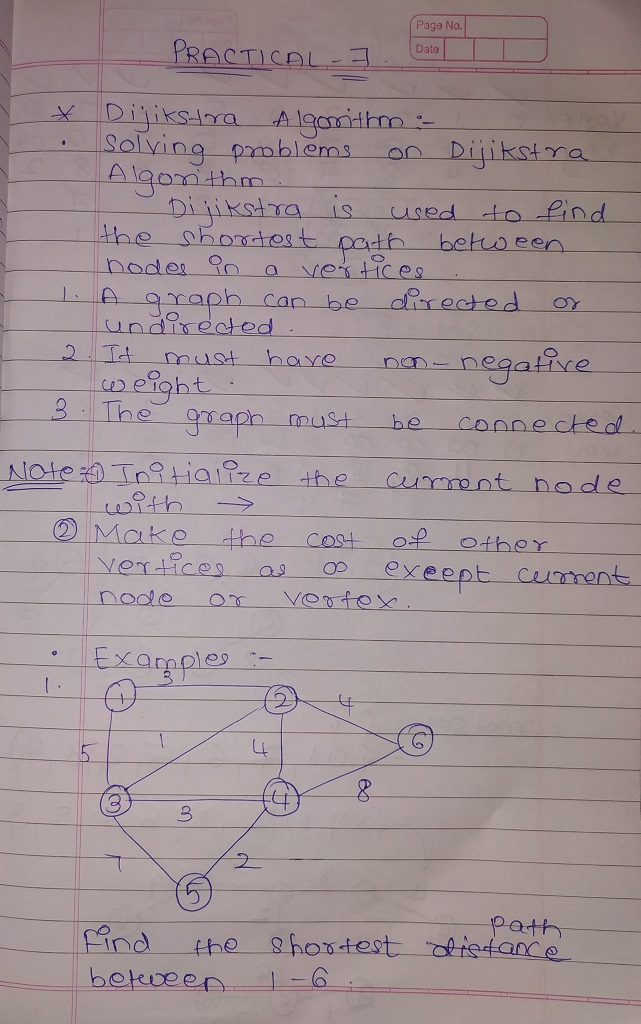 Page No.
Date
PRACTICAL - 7
* Dijikstra Algorithm :-
• Solving problems on Dijikstra
Algorithm.
Dijikstra is used to find
the shortest path between
nodes in a vertices.
1. A graph can be directed or
undirected.
2. It must have non-negative
weight.
3. The graph must be connected.
Note :- ① Initialize the current node
with →
② Make the cost of other
vertices as ∞ exeept current
node or vertex.
• Examples :-
1.
3
1 2 4
5 1 4 6
3 3 4 8
7 2
5
path
Find the shortest distance
between 1-6.